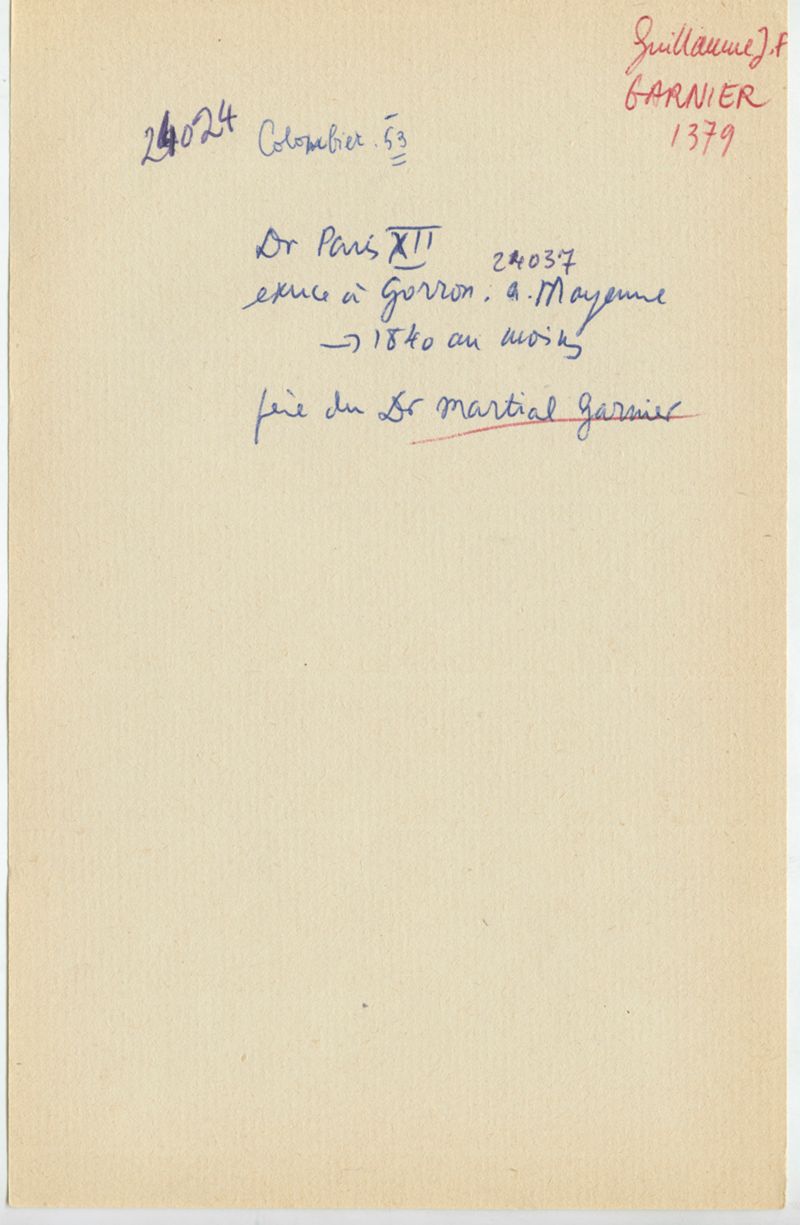 Guillaume J.F
GARNIER
1379
24024 Colombier. 53
Dr Paris XII
24037
exerce à Gorron. a. Mayenne
→ 1840 au moins
père du Dr Martial Garnier